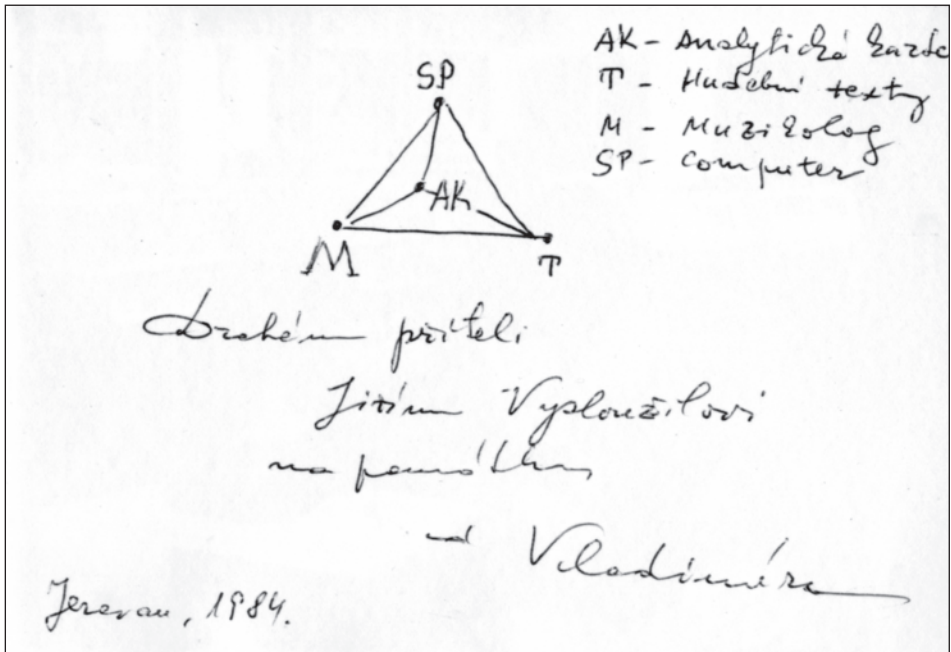 AK - Analytická
T - Hudební texty
M - Muzikolog
SP - Computer
SP
AK
M
T
Drahému příteli
Jiřímu Vysloužilovi
na památku
od Vladimíra
Jerevan, 1984.